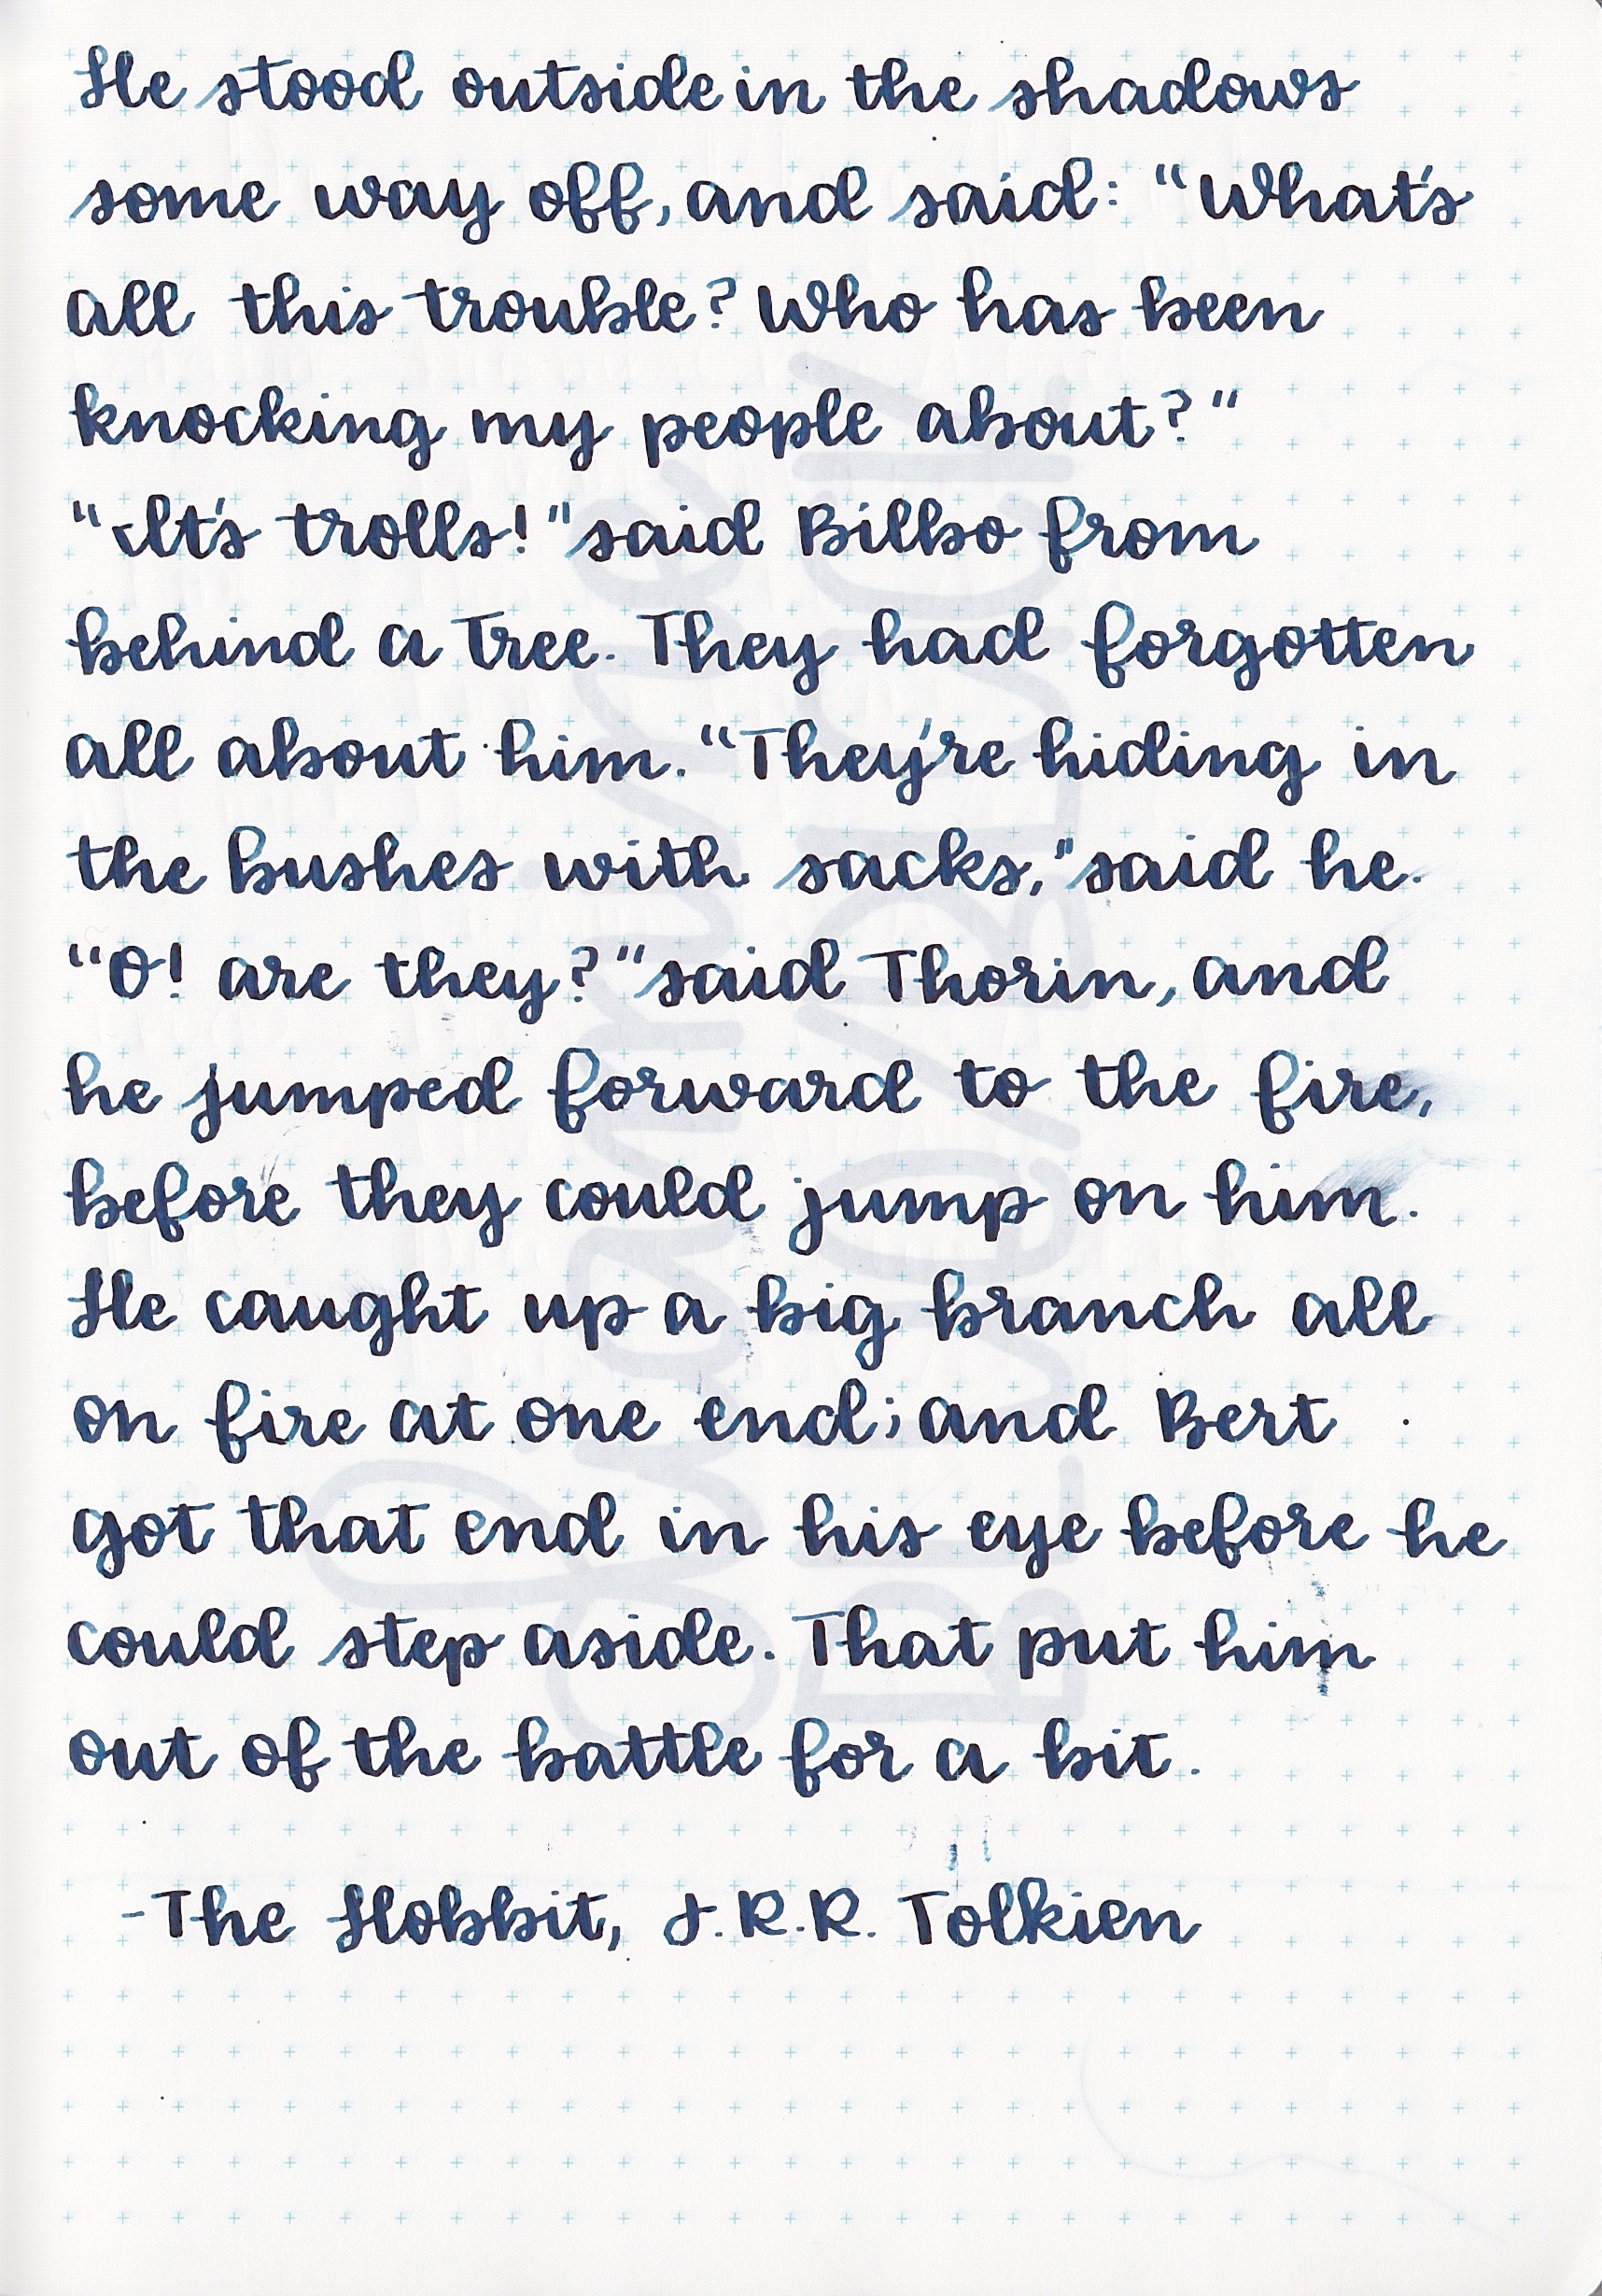 He stood outside in the shadows
some way off, and said: "What's
all this trouble? Who has been
knocking my people about?"
"It's trolls!" said Bilbo from
behind a tree. They had forgotten
all about him. "They're hiding in
the bushes with sacks," said he.
"O! are they?" said Thorin, and
he jumped forward to the fire,
before they could jump on him.
He caught up a big branch all
on fire at one end; and Bert
got that end in his eye before he
could step aside. That put him
out of the battle for a bit.
-The Hobbit, J.R.R. Tolkien